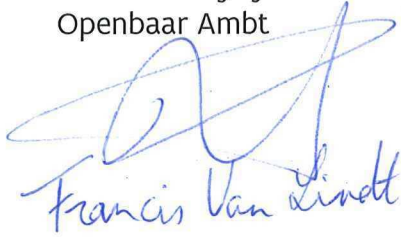 Openbaar Ambt
Francis Van Lindt